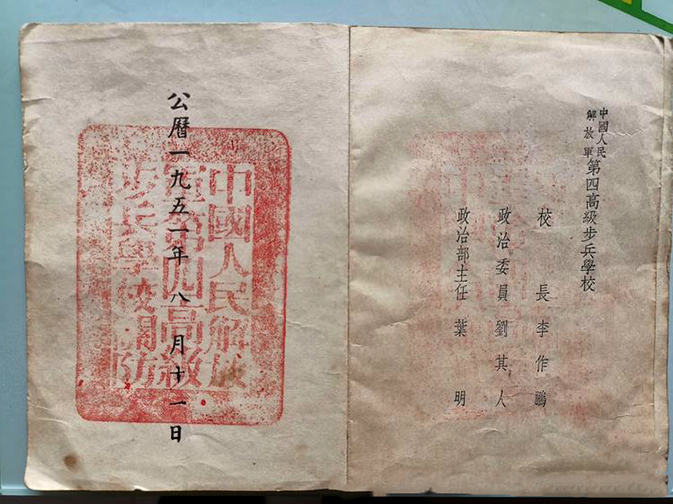 中國人民
解放軍
第四高級步兵學校
校長李作鵬
政治委員劉其人
政治部主任葉明
公曆一九五一年八月十一日
中國人民解放
軍第四高級
步兵學校關防